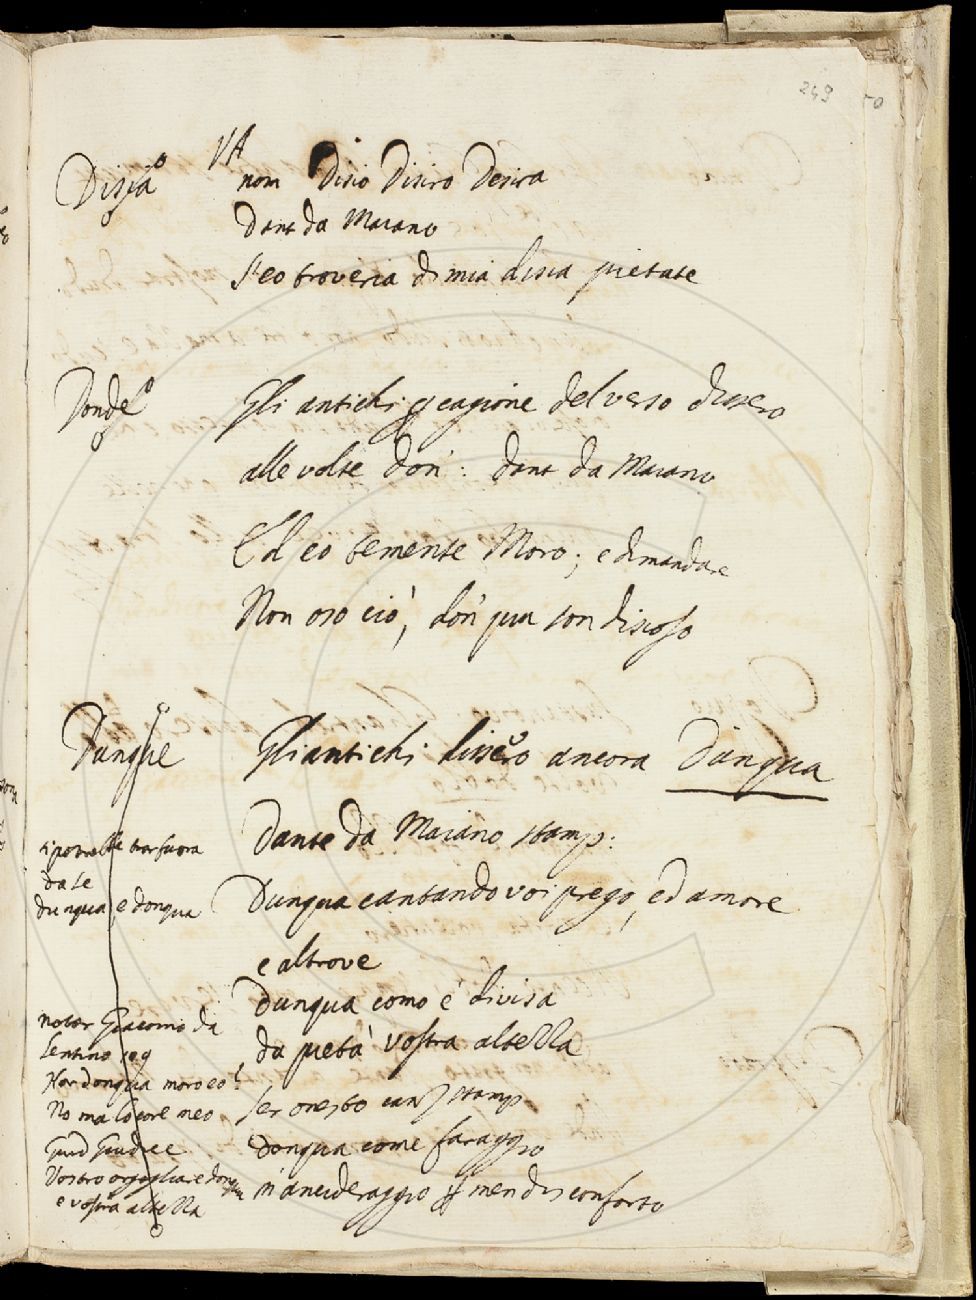 249
Disia VA nom Disio Disiro Desira
Dant da Maiano
S'eo troveria di mia disia pietate
Donde Gli antichi p cagione del verso dissero
alle volte don': dant da Maiano
Ed eo temente Moro; e dimandare
Non oso ciò, don' pua son disioso
Dunque Gli antichi dissero ancora Dunqua
Dante da Maiano stamp:
Dunqua cantando voi prego, ed amore
e altrove
dunqua como è divisa
da pietà vostra altezza
Ser onesto canz stamp
donqua come faraggio
m'ancideraggio p men disconforto
si potrebbe trar fuora
da se
dunqua, e donqua
notar Giacomo da
Lentino 109
Hor donqua moro eo?
No ma lo core meo
Guid Giudice
Vostro orgoglia e donqua
e vostra altezza